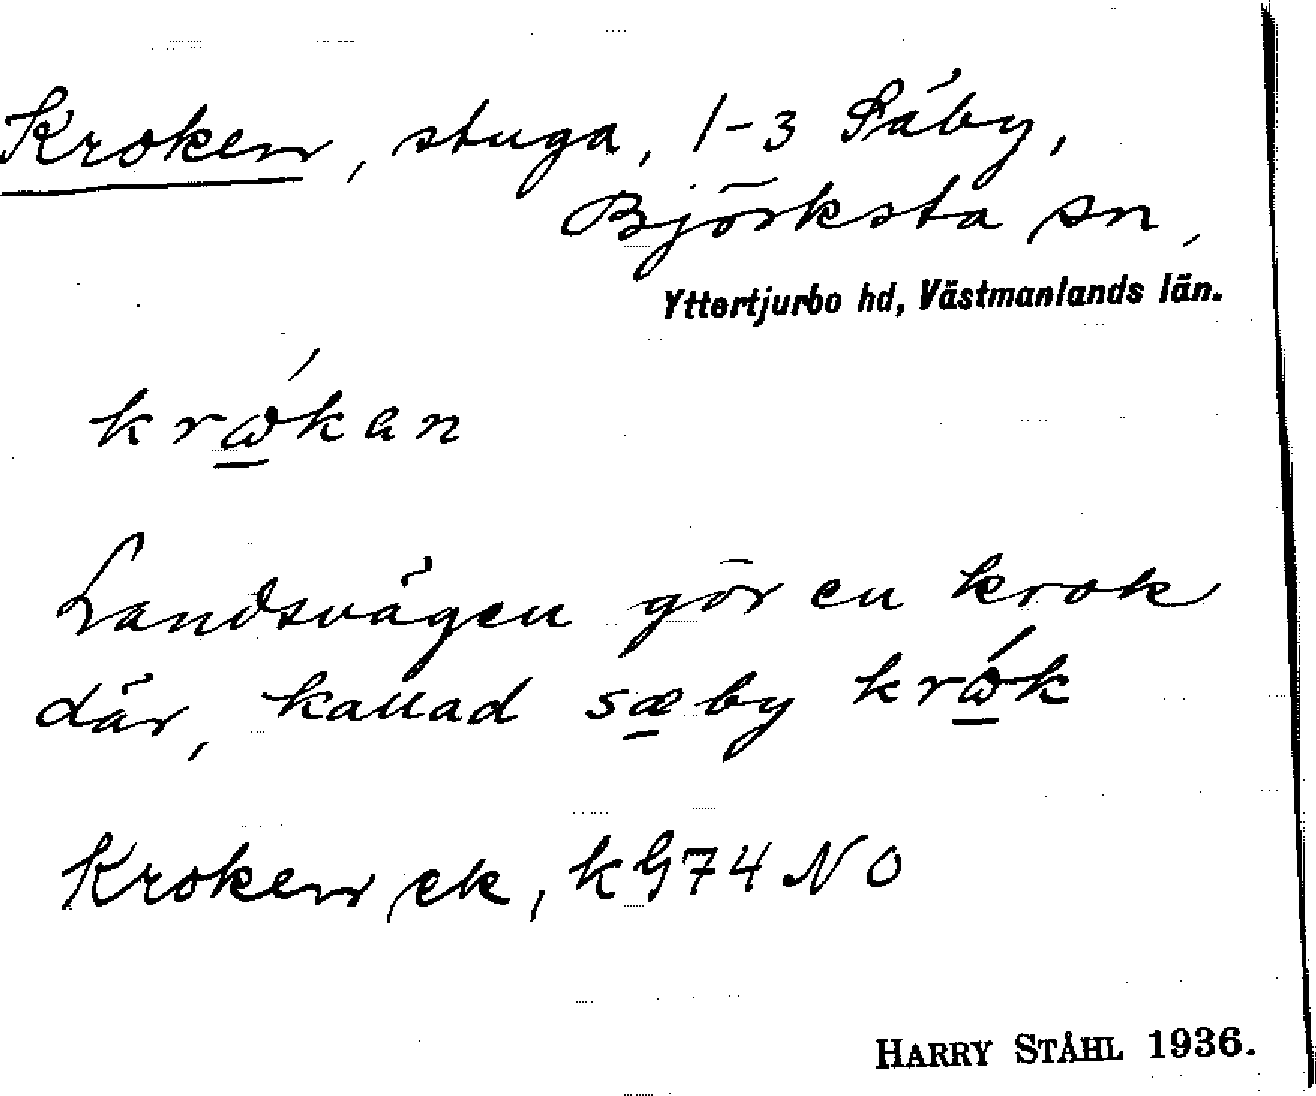 Kroken, stuga, 1-3 Säby,
Björksta sn,
Yttertjurbo hd, Västmanlands län.
krώ̲kan
Landsvägen gör en krok
där, kallad sæ̲by krώ̲k
Kroken, ek, kG74 NO
HARRY STÅHL 1936.